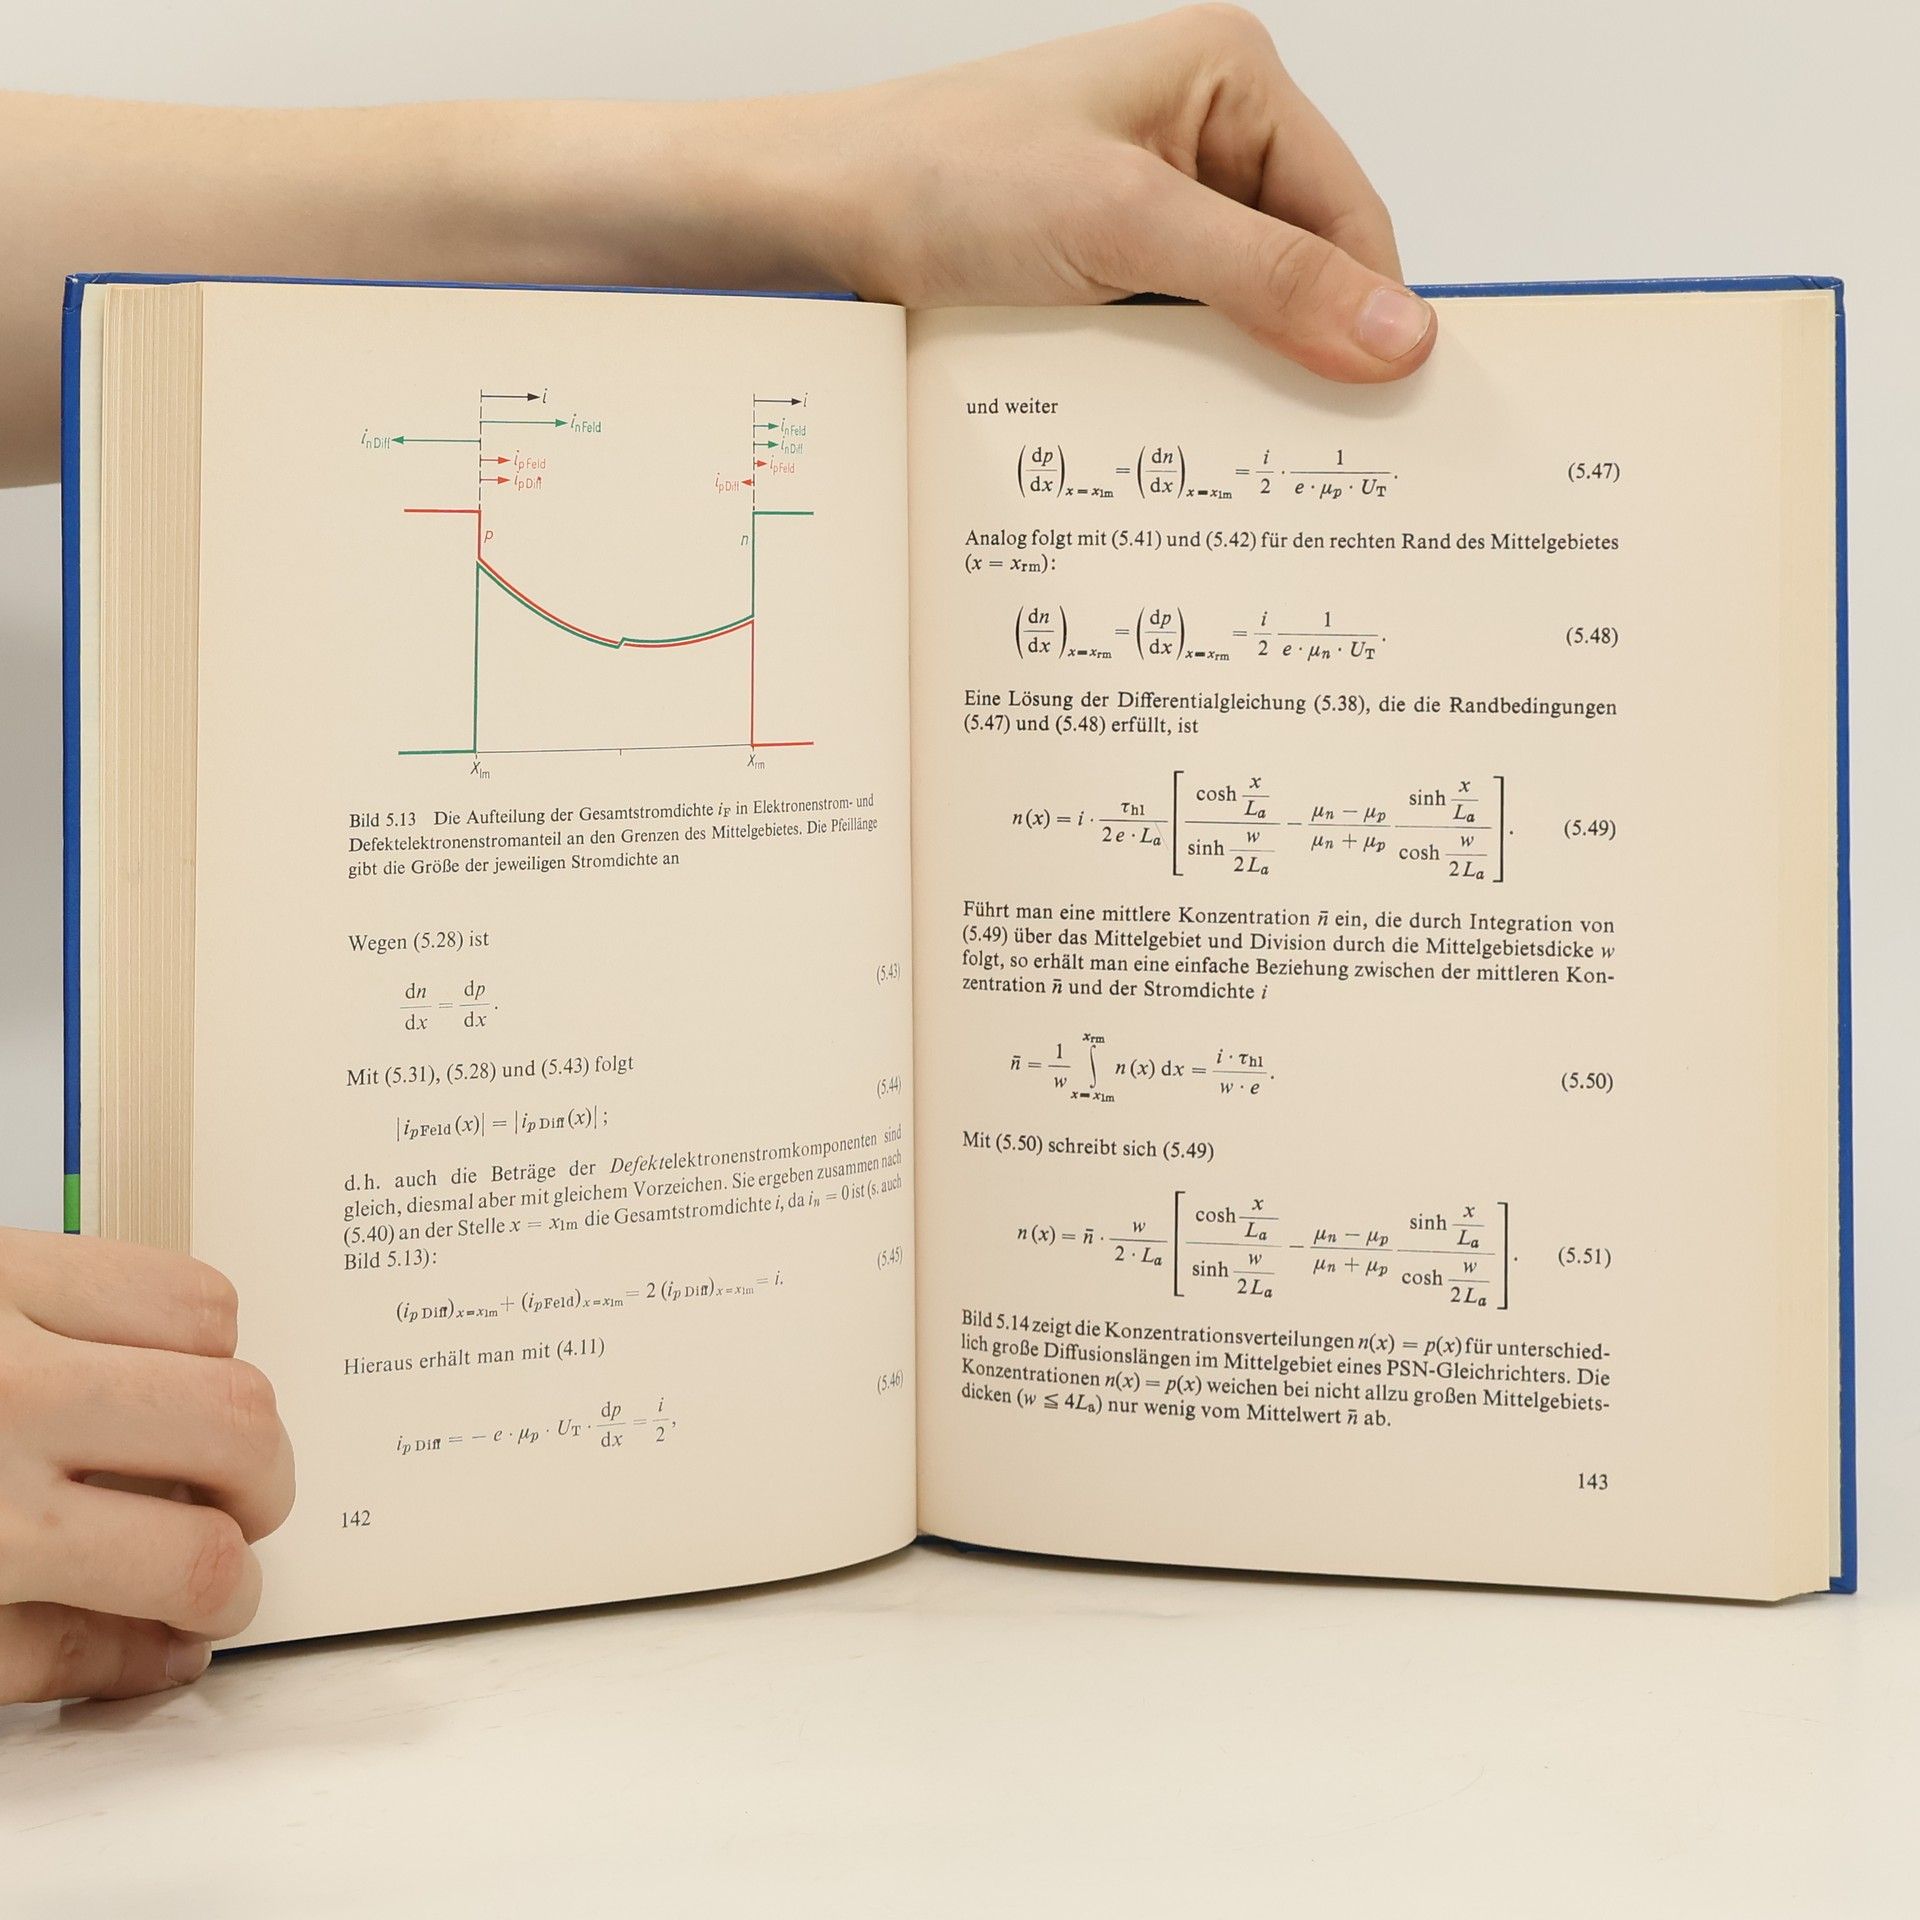 i
i
i_{n Feld}
i_{n Diff}
i_{p Feld}
i_{p Diff}
i_{n Feld}
i_{n Diff}
i_{p Feld}
i_{p Diff}
p
n
x_{lm}
x_{rm}
Bild 5.13 Die Aufteilung der Gesamtstromdichte i_F in Elektronenstrom- und
Defektelektronenstromanteil an den Grenzen des Mittelgebietes. Die Pfeillänge
gibt die Größe der jeweiligen Stromdichte an
Wegen (5.28) ist
dn/dx = dp/dx. (5.43)
Mit (5.31), (5.28) und (5.43) folgt
|i_{p Feld}(x)| = |i_{p Diff}(x)|; (5.44)
d.h. auch die Beträge der Defektelektronenstromkomponenten sind
gleich, diesmal aber mit gleichem Vorzeichen. Sie ergeben zusammen nach
(5.40) an der Stelle x = x_{lm} die Gesamtstromdichte i, da i_n = 0 ist (s. auch
Bild 5.13):
(i_{p Diff})_{x=x_{lm}} + (i_{p Feld})_{x=x_{lm}} = 2 (i_{p Diff})_{x=x_{lm}} = i. (5.45)
Hieraus erhält man mit (4.11)
i_{p Diff} = − e · μ_p · U_T · dp/dx = i/2, (5.46)
142
und weiter
(dp/dx)_{x=x_{lm}} = (dn/dx)_{x=x_{lm}} = i/2 · 1/(e · μ_p · U_T). (5.47)
Analog folgt mit (5.41) und (5.42) für den rechten Rand des Mittelgebietes
(x = x_{rm}):
(dn/dx)_{x=x_{rm}} = (dp/dx)_{x=x_{rm}} = i/2 1/(e · μ_n · U_T). (5.48)
Eine Lösung der Differentialgleichung (5.38), die die Randbedingungen
(5.47) und (5.48) erfüllt, ist
n(x) = i · τ_{hl}/(2e · L_a) [cosh(x/L_a)/sinh(w/2L_a) − (μ_n − μ_p)/(μ_n + μ_p) sinh(x/L_a)/cosh(w/2L_a)]. (5.49)
Führt man eine mittlere Konzentration n̄ ein, die durch Integration von
(5.49) über das Mittelgebiet und Division durch die Mittelgebietsdicke w
folgt, so erhält man eine einfache Beziehung zwischen der mittleren Kon-
zentration n̄ und der Stromdichte i
n̄ = 1/w ∫_{x=x_{lm}}^{x_{rm}} n(x) dx = i · τ_{hl}/(w · e). (5.50)
Mit (5.50) schreibt sich (5.49)
n(x) = n̄ · w/(2 · L_a) [cosh(x/L_a)/sinh(w/2L_a) − (μ_n − μ_p)/(μ_n + μ_p) sinh(x/L_a)/cosh(w/2L_a)]. (5.51)
Bild 5.14 zeigt die Konzentrationsverteilungen n(x) = p(x) für unterschied-
lich große Diffusionslängen im Mittelgebiet eines PSN-Gleichrichters. Die
Konzentrationen n(x) = p(x) weichen bei nicht allzu großen Mittelgebiets-
dicken (w ≦ 4L_a) nur wenig vom Mittelwert n̄ ab.
143